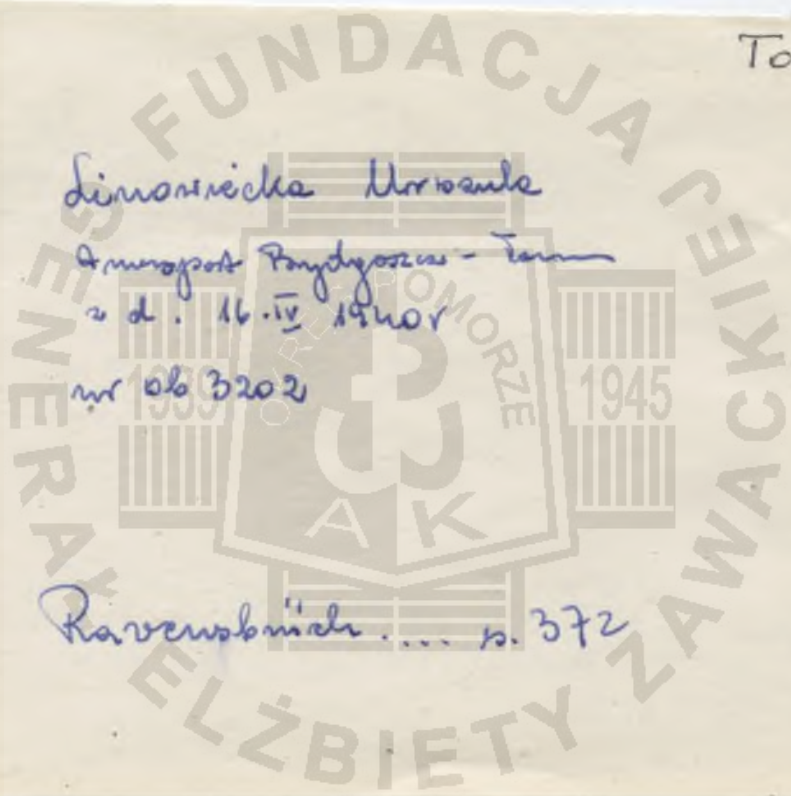 To
Linowiecka Urszula
Transport Bydgoszcz - Toruń
z d. 16.IV 1940r
nr ob 3202
Ravensbrück .... s. 372
FUNDACJA GENERAŁ ELŻBIETY ZAWACKIEJ
OKRĘG POMORZE
1939 1945
AK